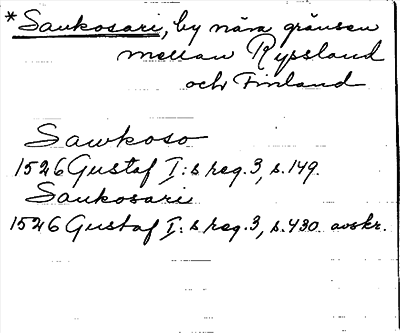 *Saukosari, by nära gränsen
mellan Ryssland
och Finland
Sawkoso
1526 Gustaf I:s reg. 3, s. 149.
Saukosari
1526 Gustaf I:s reg. 3, s. 430 avskr.